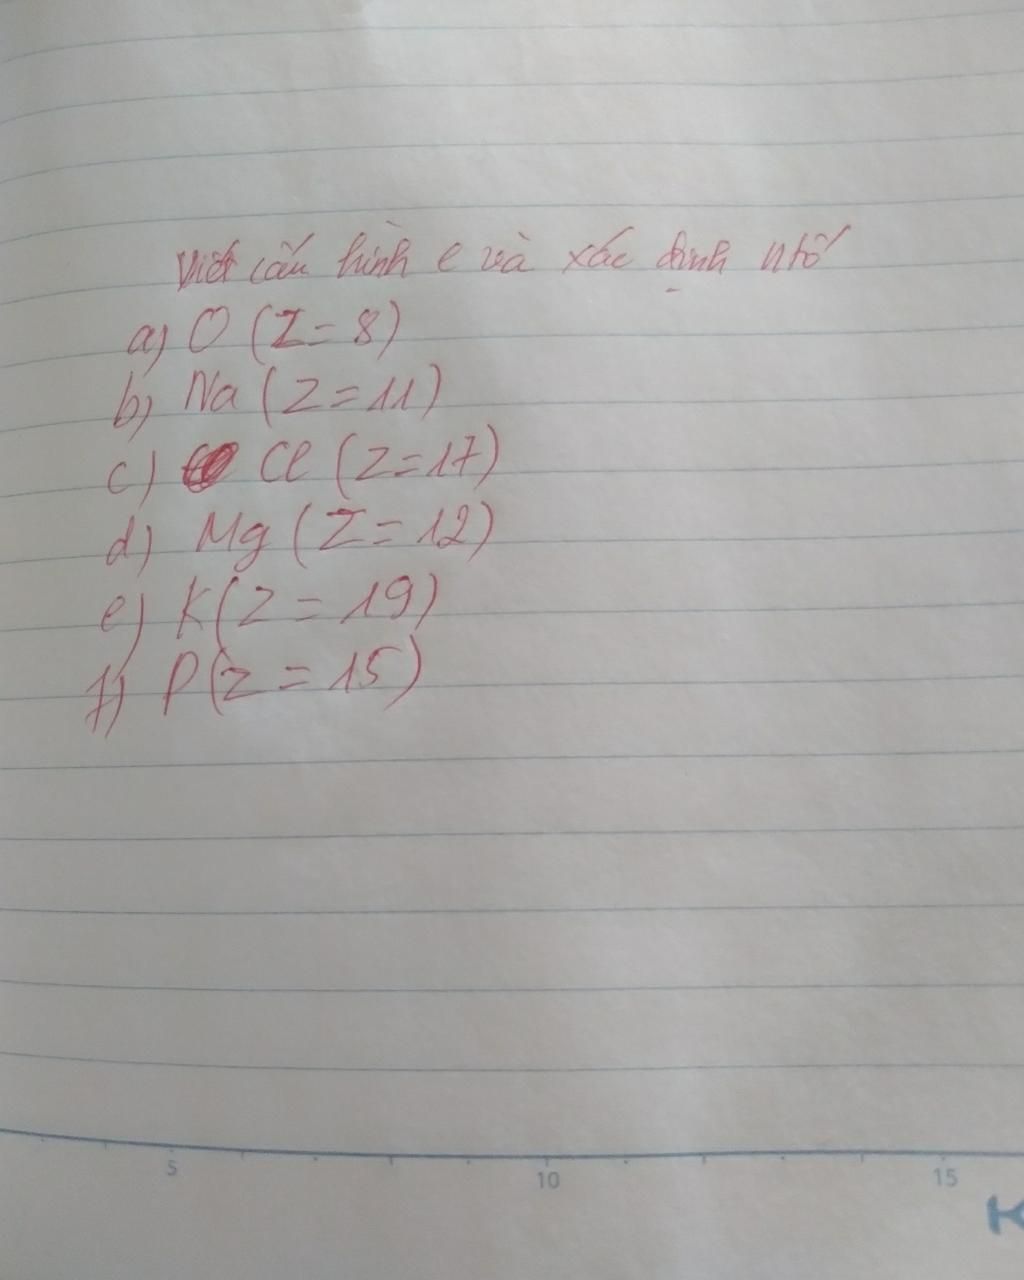 Viết cấu hình e và xác định ntố
a) O (Z = 8)
b) Na (Z = 11)
c) Cl (Z = 17)
d) Mg (Z = 12)
e) K (Z = 19)
f) P (Z = 15)
5 10 15
K